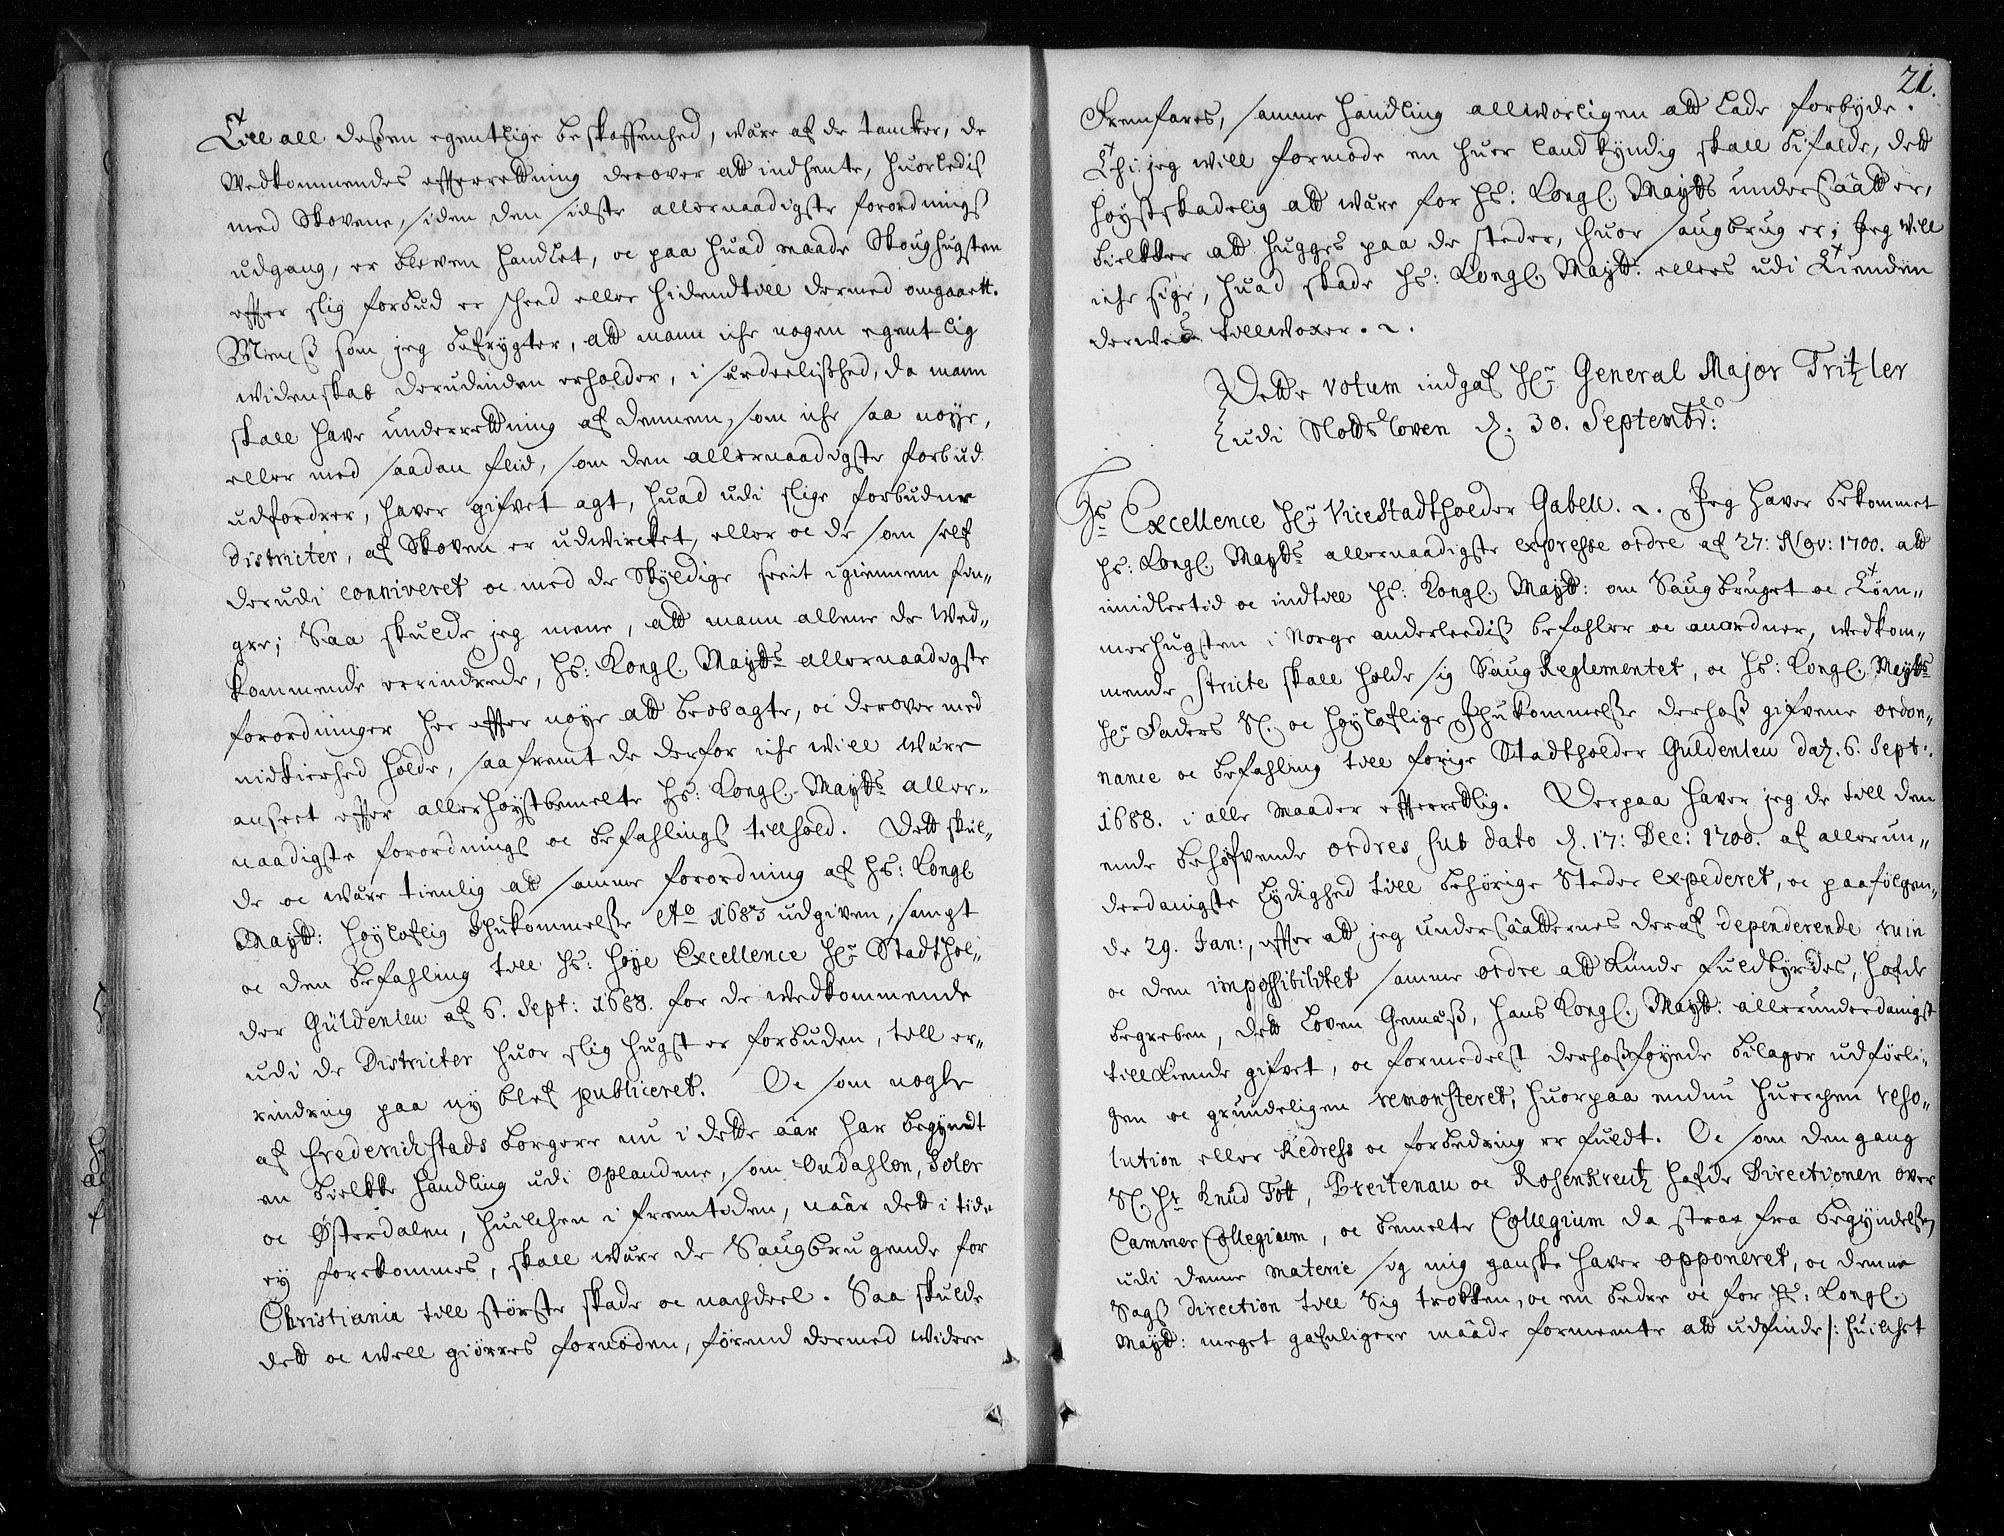 Till all deßen egentlige beskaffenhed, wäre af de tancker, de
Wedkommendes efferrettning derover att indhente, huorledis
med Skovene, siden den sidste allernaadigste forordnings
udgang, er bleven handlet, oc paa huad maade Skoughugsten
effter slig forbud er scheed eller hidendtill dermed omgaaett.
Menß som jeg befrygter, att mann iche nogen egentlig
Widenskab derudinden erholder, i särdeelißhed, da mann
skall have underrettning af dennem, som iche saa nøye,
eller med saadan flid, som den allernaadigste forbud
udfordrer, haver gifvet agt, huad udi slige forbudne
districter, af Skoven er udwircket, eller oc de som self
derudi conniveret oc med de Skyldige seeit igiennem fin-
gre; Saa skulde jeg mene, att mann allene de Wed-
kommende errindrede, Hs: Kongl. Maytts allernaadigste
forordninger her effter nøye att beobagte, oc derover med
nidkierhed holde, saafremt de derfor iche will wäre
anseet effter allerhøystbemelte Hs: Kongl. Maytts aller-
naadigste forordnings oc befahlings tillhold. Dett skul-
de oc wäre tienlig att samme forordning af Hs: Kongl
Maytt: høyloflig Ihukommelße Ao 1683 udgiven, sampt
oc den befahling till Hs: høye Excellence Hr Stadthol-
der Güldenleu af 6. Sept: 1688. for de wedkommende
udi de Districter huor slig hugst er forbuden, till er-
rindring paa ny blef publiceret. Oc som nogle
af Frederichstads borgere nu i dette aar har begyndt
en bielkke handling udi Oplandene, som Oudahlen, Soler
oc Østerdalen, huilchen i fremtiden, naar dett i tide
ey forekommes, skall wäre de Saugbrugende for
Christiania till største skade oc nachdeel. Saa skulde
dett oc well giørres fornøden, førend dermed widere
21.
Fremfares, samme handling allworligen att lade forbyde.
Thi jeg will formode en huer landkyndig skall bifalde, dett
høystskadelig att wäre for Hs: Kongl. Maytts undersaatter,
bielkker att hugges paa de steder, huor saugbrug er; Jeg will
iche sige, huad skade Hs: Kongl. Maytt. ellers udi Tienden
derwed tillwoxer.
Dette votum indgaf Hr General Major Tritzler
udi Slottsloven d. 30. Septembr:
Hs Excellence Hr ViceStadtholder Gabell. Jeg haver bekommet
Hs: Kongl. Maytts allernaadigste expresse ordre af 27: Nov: 1700. att
imidlertid oc indtill Hs: Kongl. Maytt: om Saugbruget oc Töm-
merhugsten i Norge anderleediß befahler oc anordner, wedkom-
mende stricte skall holde sig Saug Reglementet, oc Hs: Kongl. Maytts
Hr Faders Sl. oc Høyloflige Ihukommelße derhoß gifvene ordon-
nance oc befahling till forige Stadtholder Guldenleu dat. 6. Sept:
1688. i alle maader efferrettlig. Derpaa haver jeg de till den
ende behøfvende ordres sub dato d. 17: Dec: 1700. af allerun-
derdanigste Lydighed till behørige Steder expederet, oc paafølgen-
de 29. Jan:, effter att jeg undersaatternes deraf dependerende ruin
oc den impossibilitet samme ordre att kunde fuldbyrdes, hafde
begreben, dett Loven Gemäß, Hans Kongl. Maytt: allerunderdanigst
tillkiende gifvet, oc formedelst derhoßføyede bilager udførli-
gen oc grundeligen remonsteret, huorpaa endnu huerchen reso-
lution eller Redress oc forbedring er fuldt. Oc som den gang
Sl. Hr Knud Tott, Breitenau oc Rosenkreutz hafde Directionen over
Cammer Collegium, oc bemelte Collegium da strax fra begyndelßen
udi denne materie sig mig ganske haver opponeret, oc denne
Sags direction till Sig trokken, oc en bedre oc for Hs: Kongl.
Maytt: meget gafnligere maade formeente att udfinde /: huilchet